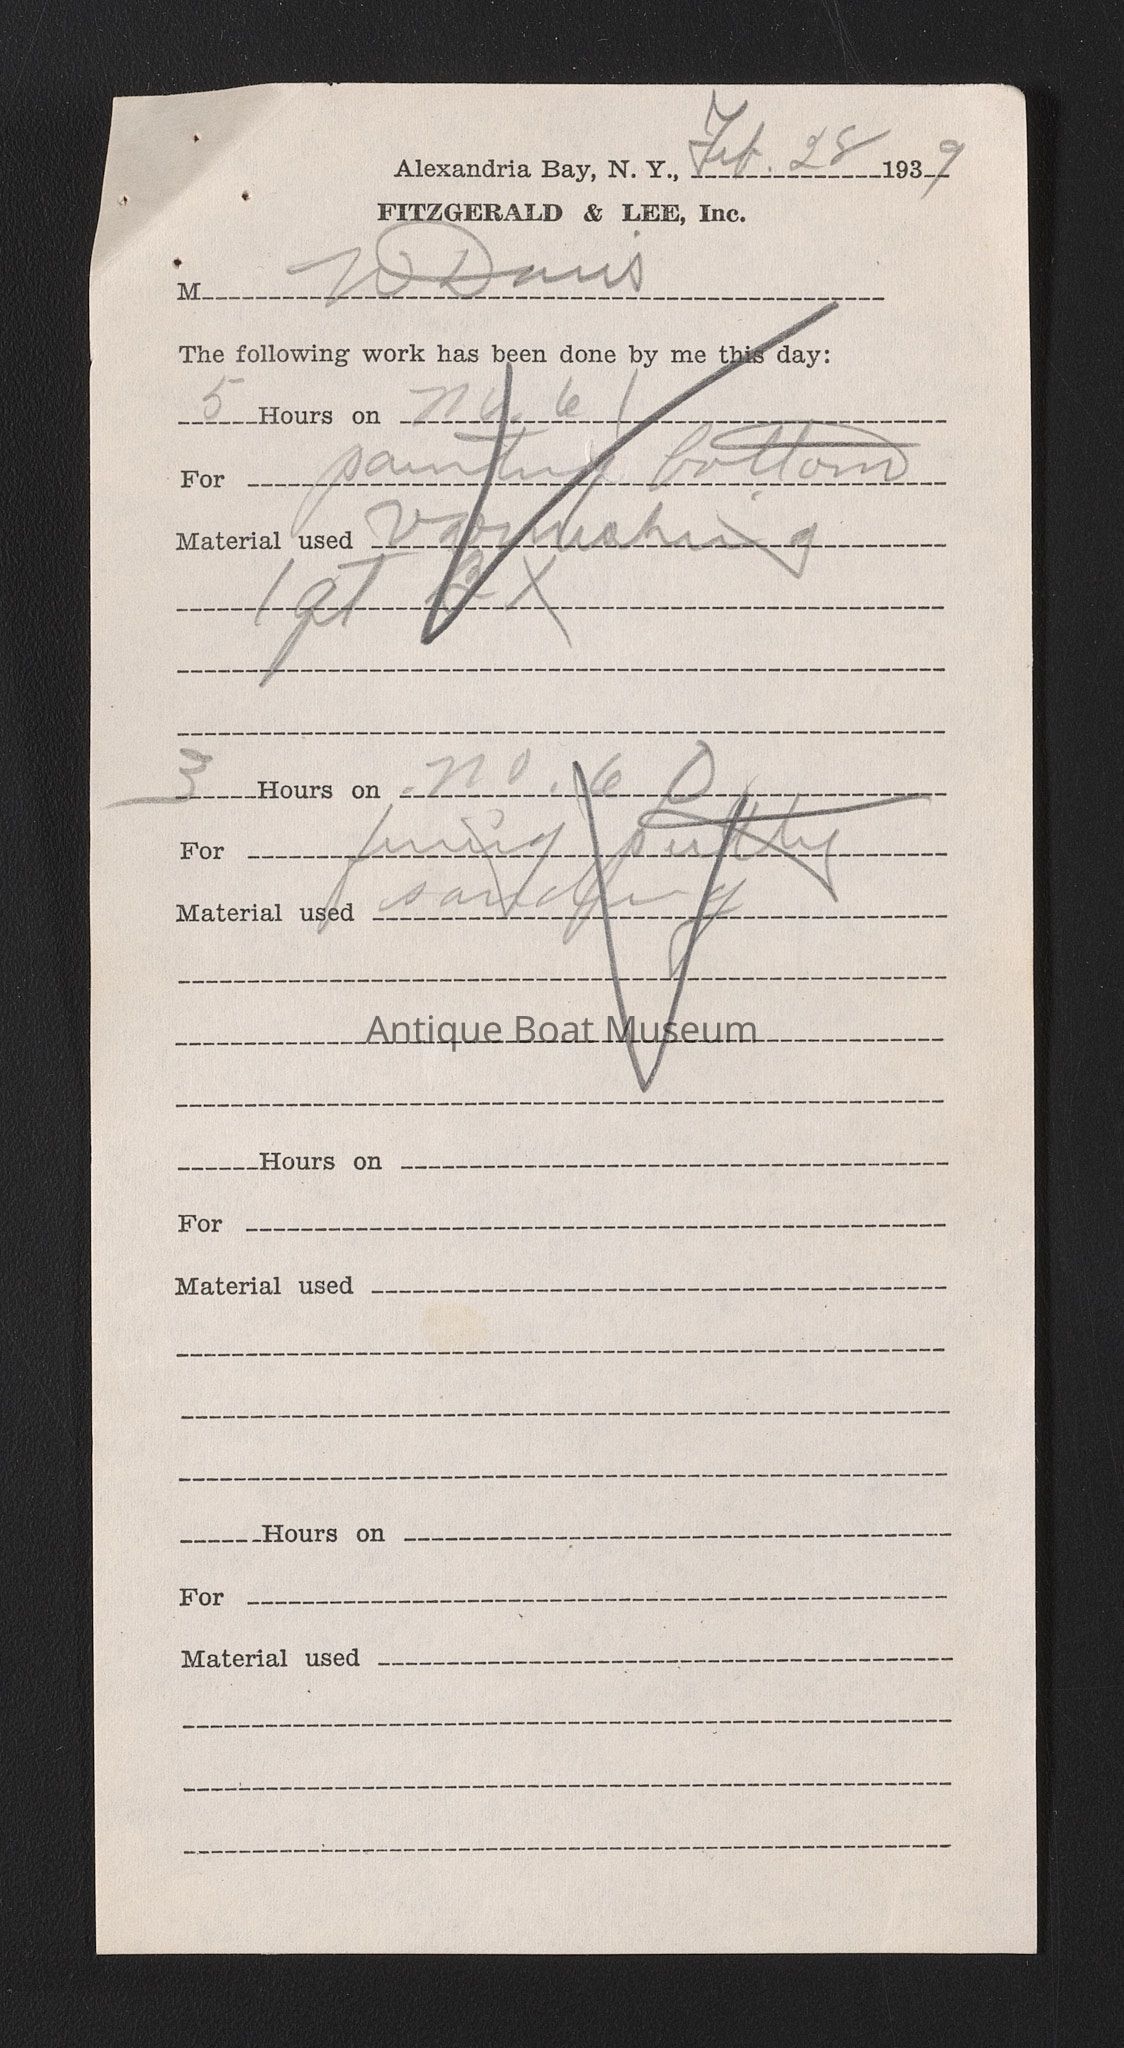 Alexandria Bay, N. Y., Feb. 28 1939
FITZGERALD & LEE, Inc.
M W Davis
The following work has been done by me this day:
5 Hours on No. 61
For painting bottom
Material used varnishing
1 qt
3 Hours on No. 60
For putty
Material used sanding
Antique Boat Museum
Hours on
For
Material used
Hours on
For
Material used